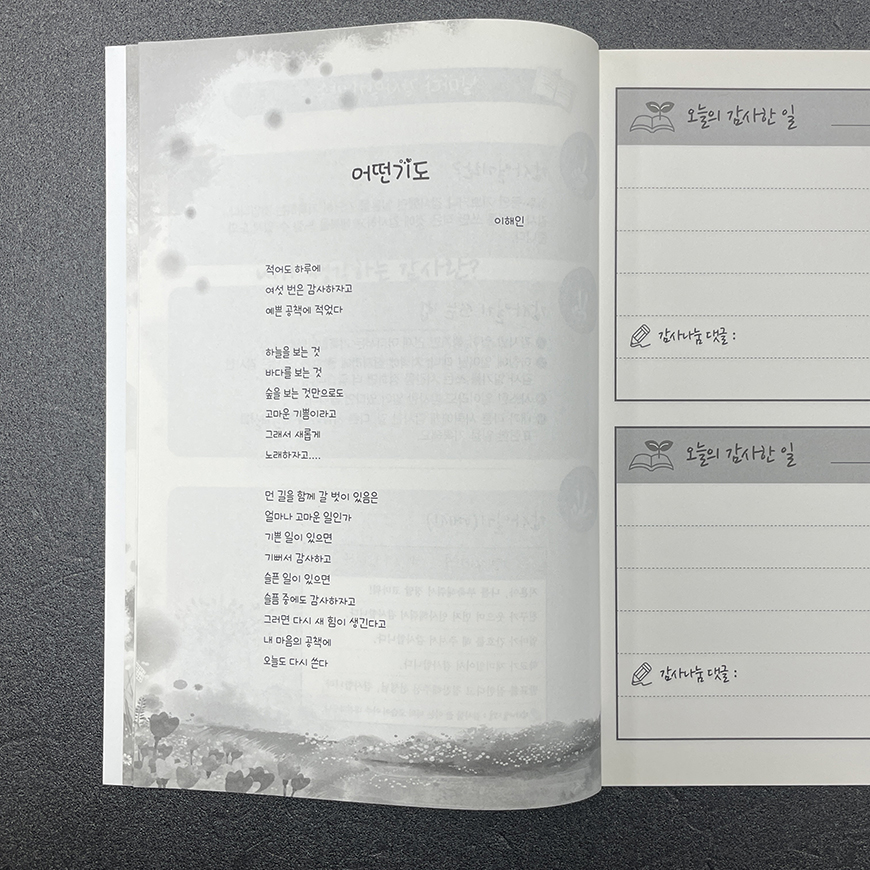 어떤기도
이해인
적어도 하루에
여섯 번은 감사하자고
예쁜 공책에 적었다
하늘을 보는 것
바다를 보는 것
숲을 보는 것만으로도
고마운 기쁨이라고
그래서 새롭게
노래하자고....
먼 길을 함께 갈 벗이 있음은
얼마나 고마운 일인가
기쁜 일이 있으면
기뻐서 감사하고
슬픈 일이 있으면
슬픔 중에도 감사하자고
그러면 다시 새 힘이 생긴다고
내 마음의 공책에
오늘도 다시 쓴다
오늘의 감사한 일
감사나눔 댓글 :
오늘의 감사한 일
감사나눔 댓글 :